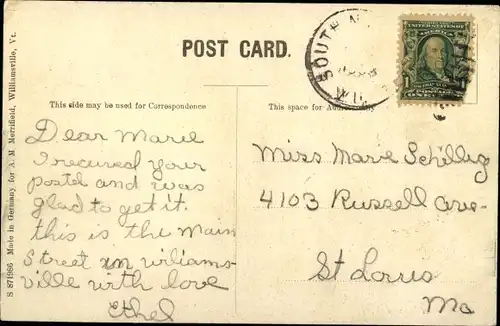 POST CARD.
SOUTH
UNITED STATES OF AMERICA
1
This side may be used for Correspondence
This space for
S 871986 Made in Germany for A. M. Merrifield, Williamsville, Vt.
Dear Marie
I recieved your
postel and was
glad to get it.
this is the main
Street in williams-
ville with love
Ethel
Miss Marie Schillig
4103 Russell ave-
St Louis
Mo